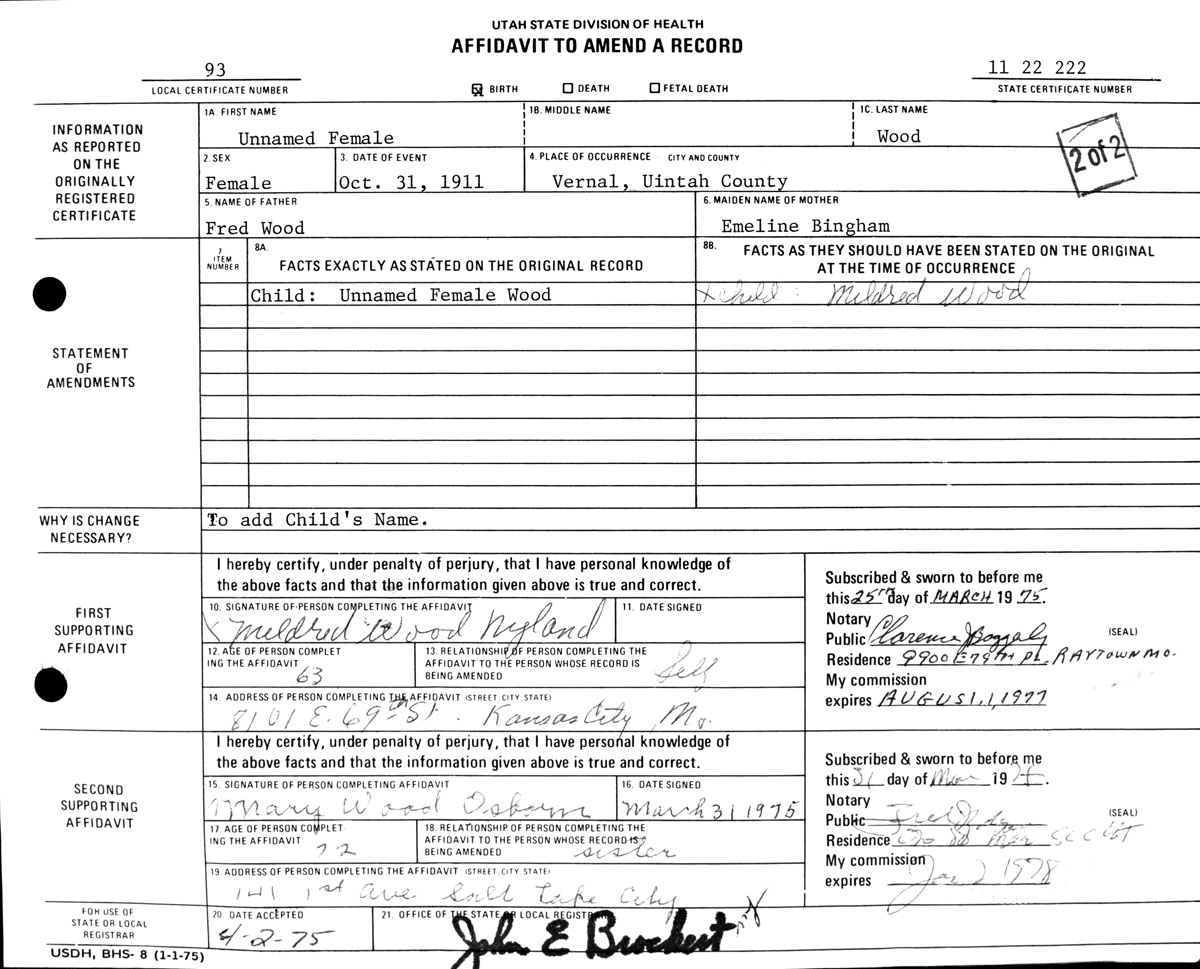 UTAH STATE DIVISION OF HEALTH
AFFIDAVIT TO AMEND A RECORD
93
LOCAL CERTIFICATE NUMBER
☒ BIRTH ☐ DEATH ☐ FETAL DEATH
11 22 222
STATE CERTIFICATE NUMBER
INFORMATION
AS REPORTED
ON THE
ORIGINALLY
REGISTERED
CERTIFICATE
1A FIRST NAME
Unnamed Female
1B. MIDDLE NAME
1C. LAST NAME
Wood
2 of 2
2. SEX
Female
3. DATE OF EVENT
Oct. 31, 1911
4. PLACE OF OCCURRENCE CITY AND COUNTY
Vernal, Uintah County
5. NAME OF FATHER
Fred Wood
6. MAIDEN NAME OF MOTHER
Emeline Bingham
STATEMENT
OF
AMENDMENTS
7
ITEM
NUMBER
8A.
FACTS EXACTLY AS STATED ON THE ORIGINAL RECORD
8B. FACTS AS THEY SHOULD HAVE BEEN STATED ON THE ORIGINAL
AT THE TIME OF OCCURRENCE
Child: Unnamed Female Wood
x Child: Mildred Wood
WHY IS CHANGE
NECESSARY?
To add Child's Name.
FIRST
SUPPORTING
AFFIDAVIT
I hereby certify, under penalty of perjury, that I have personal knowledge of
the above facts and that the information given above is true and correct.
10. SIGNATURE OF PERSON COMPLETING THE AFFIDAVIT
x Mildred Wood Nyland
11. DATE SIGNED
12. AGE OF PERSON COMPLET
ING THE AFFIDAVIT
63
13. RELATIONSHIP OF PERSON COMPLETING THE
AFFIDAVIT TO THE PERSON WHOSE RECORD IS
BEING AMENDED
Self
14. ADDRESS OF PERSON COMPLETING THE AFFIDAVIT (STREET, CITY, STATE)
8101 E. 69th St. Kansas City Mo.
Subscribed & sworn to before me
this 25th day of MARCH 19 75.
Notary
Public Clarence (SEAL)
Residence 9900 E 79TH PL, RAYTOWN MO.
My commission
expires AUGUST 1, 1977
SECOND
SUPPORTING
AFFIDAVIT
I hereby certify, under penalty of perjury, that I have personal knowledge of
the above facts and that the information given above is true and correct.
15. SIGNATURE OF PERSON COMPLETING AFFIDAVIT
Mary Wood Osborn
16. DATE SIGNED
March 31 1975
17. AGE OF PERSON COMPLET-
ING THE AFFIDAVIT
72
18. RELATIONSHIP OF PERSON COMPLETING THE
AFFIDAVIT TO THE PERSON WHOSE RECORD IS
BEING AMENDED
sister
19. ADDRESS OF PERSON COMPLETING AFFIDAVIT (STREET, CITY, STATE)
141 1st Ave Salt Lake City
Subscribed & sworn to before me
this 31 day of Mar 19
Notary
Public (SEAL)
Residence
My commission
expires Jan 2 1978
FOR USE OF
STATE OR LOCAL
REGISTRAR
20 DATE ACCEPTED
4-2-75
21. OFFICE OF THE STATE OR LOCAL REGISTRAR
John E Brockert
USDH, BHS- 8 (1-1-75)